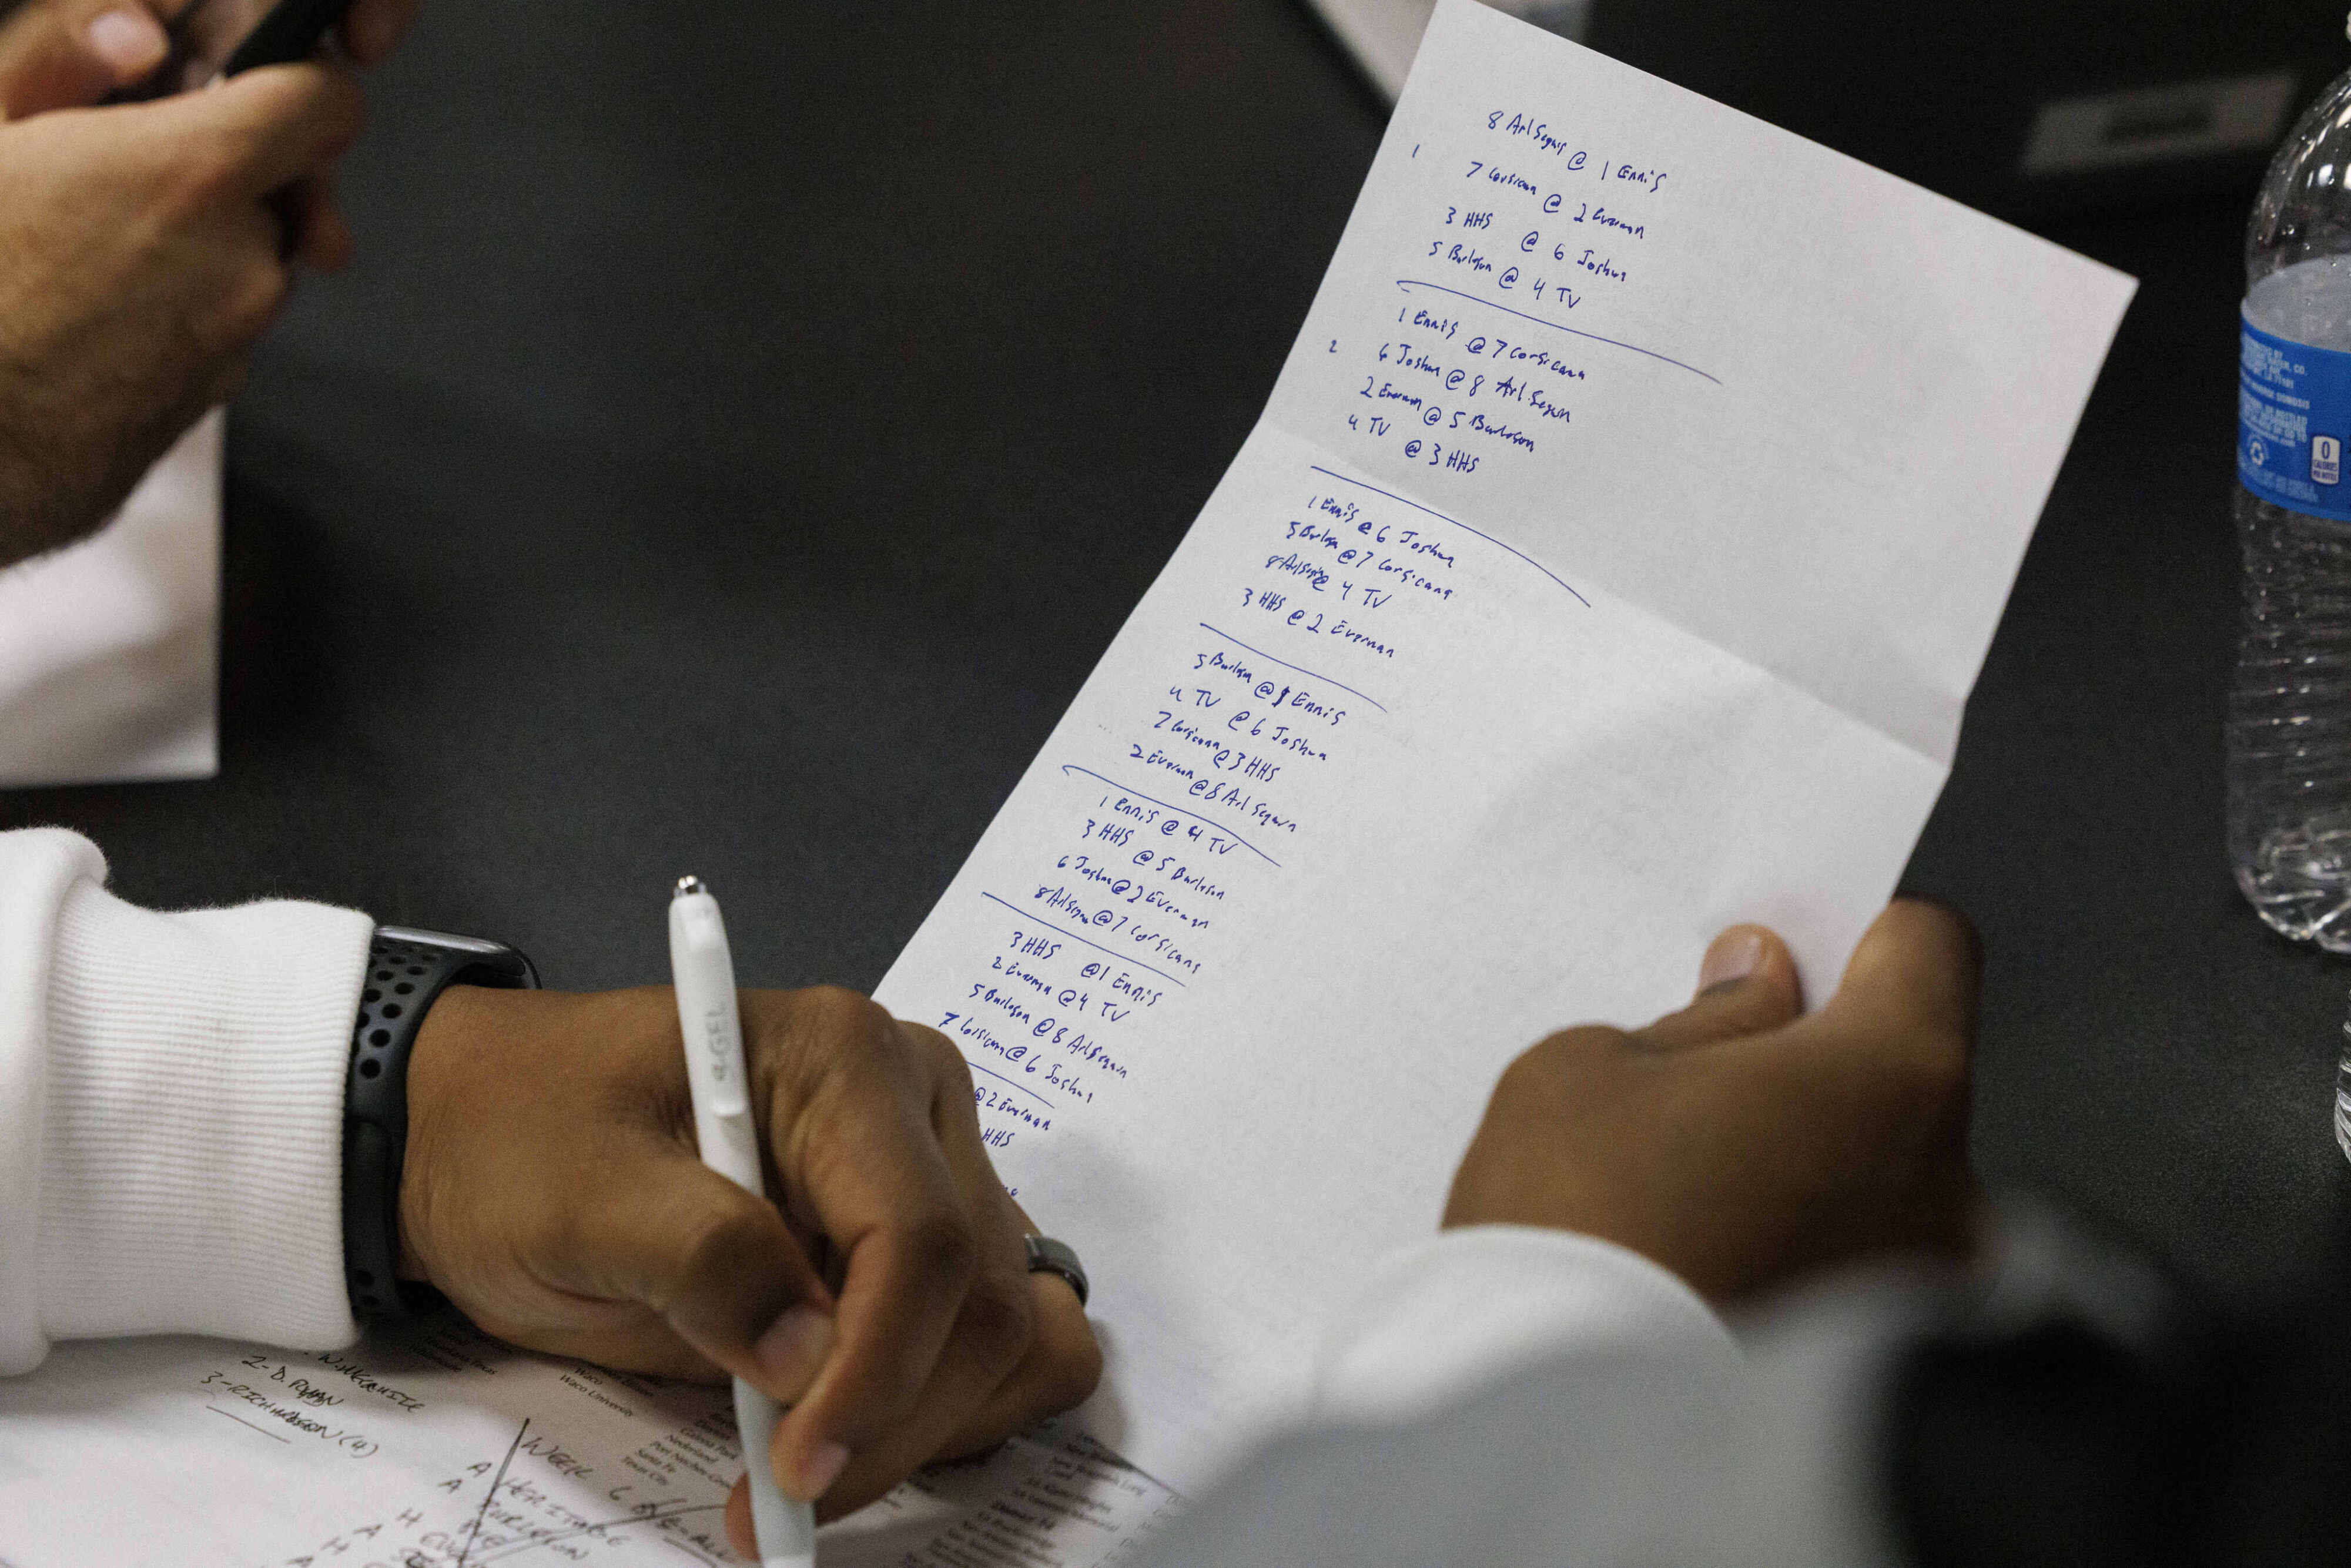 8 Arl Seguin @ 1 Ennis
1
7 Corsicana @ 2 Everman
3 HHS @ 6 Joshua
5 Burleson @ 4 TV
1 Ennis @ 7 Corsicana
2
6 Joshua @ 8 Arl Seguin
2 Everman @ 5 Burleson
4 TV @ 3 HHS
1 Ennis @ 6 Joshua
5 Burleson @ 7 Corsicana
8 Arl Seguin @ 4 TV
3 HHS @ 2 Everman
5 Burleson @ 1 Ennis
4 TV @ 6 Joshua
7 Corsicana @ 3 HHS
2 Everman @ 8 Arl Seguin
1 Ennis @ 4 TV
3 HHS @ 5 Burleson
6 Joshua @ 2 Everman
8 Arl Seguin @ 7 Corsicana
3 HHS @ 1 Ennis
2 Everman @ 4 TV
5 Burleson @ 8 Arl Seguin
7 Corsicana @ 6 Joshua
@ 2 Everman
HHS
0
CALORIES
PER BOTTLE
a·GEL
2-D. RYAN
3-RICHARDSON (4)
Waco University
Galena Park
Nederland
Port Neches
Santa Fe
Texas City
WEEK 6 BYE-ALL
A HERITAGE
A BURLESON
H
A
H
A